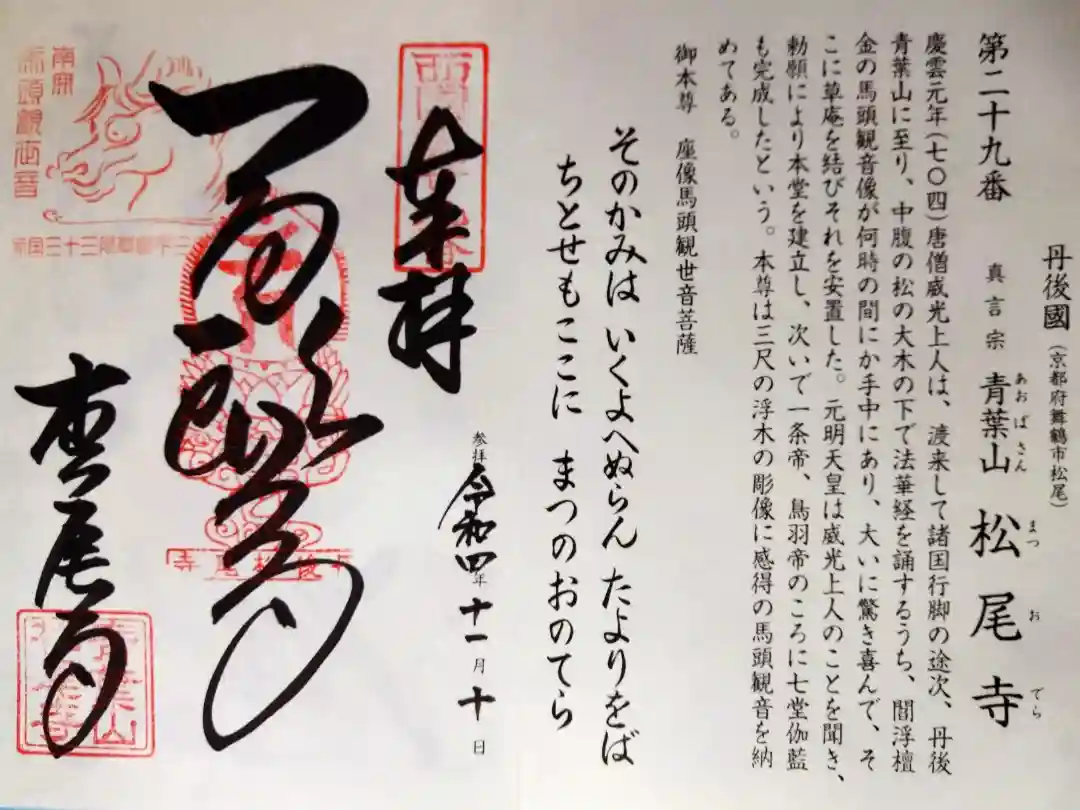 丹後國（京都府舞鶴市松尾）
第二十九番　真言宗　青葉山　松尾寺
あおばさん　まつおでら
慶雲元年（七〇四）唐僧威光上人は、渡来して諸国行脚の途次、丹後
青葉山に至り、中腹の松の大木の下で法華経を誦するうち、閻浮檀
金の馬頭観音像が何時の間にか手中にあり、大いに驚き喜んで、そ
こに草庵を結びそれを安置した。元明天皇は威光上人のことを聞き、
勅願により本堂を建立し、次いで一条帝、鳥羽帝のころに七堂伽藍
も完成したという。本尊は三尺の浮木の彫像に感得の馬頭観音を納
めてある。
御本尊　座像馬頭観世音菩薩
そのかみは いくよへぬらん たよりをば
ちとせもここに まつのおのてら
参拝 令和四年十一月十日
奉拝
松尾寺
青葉山